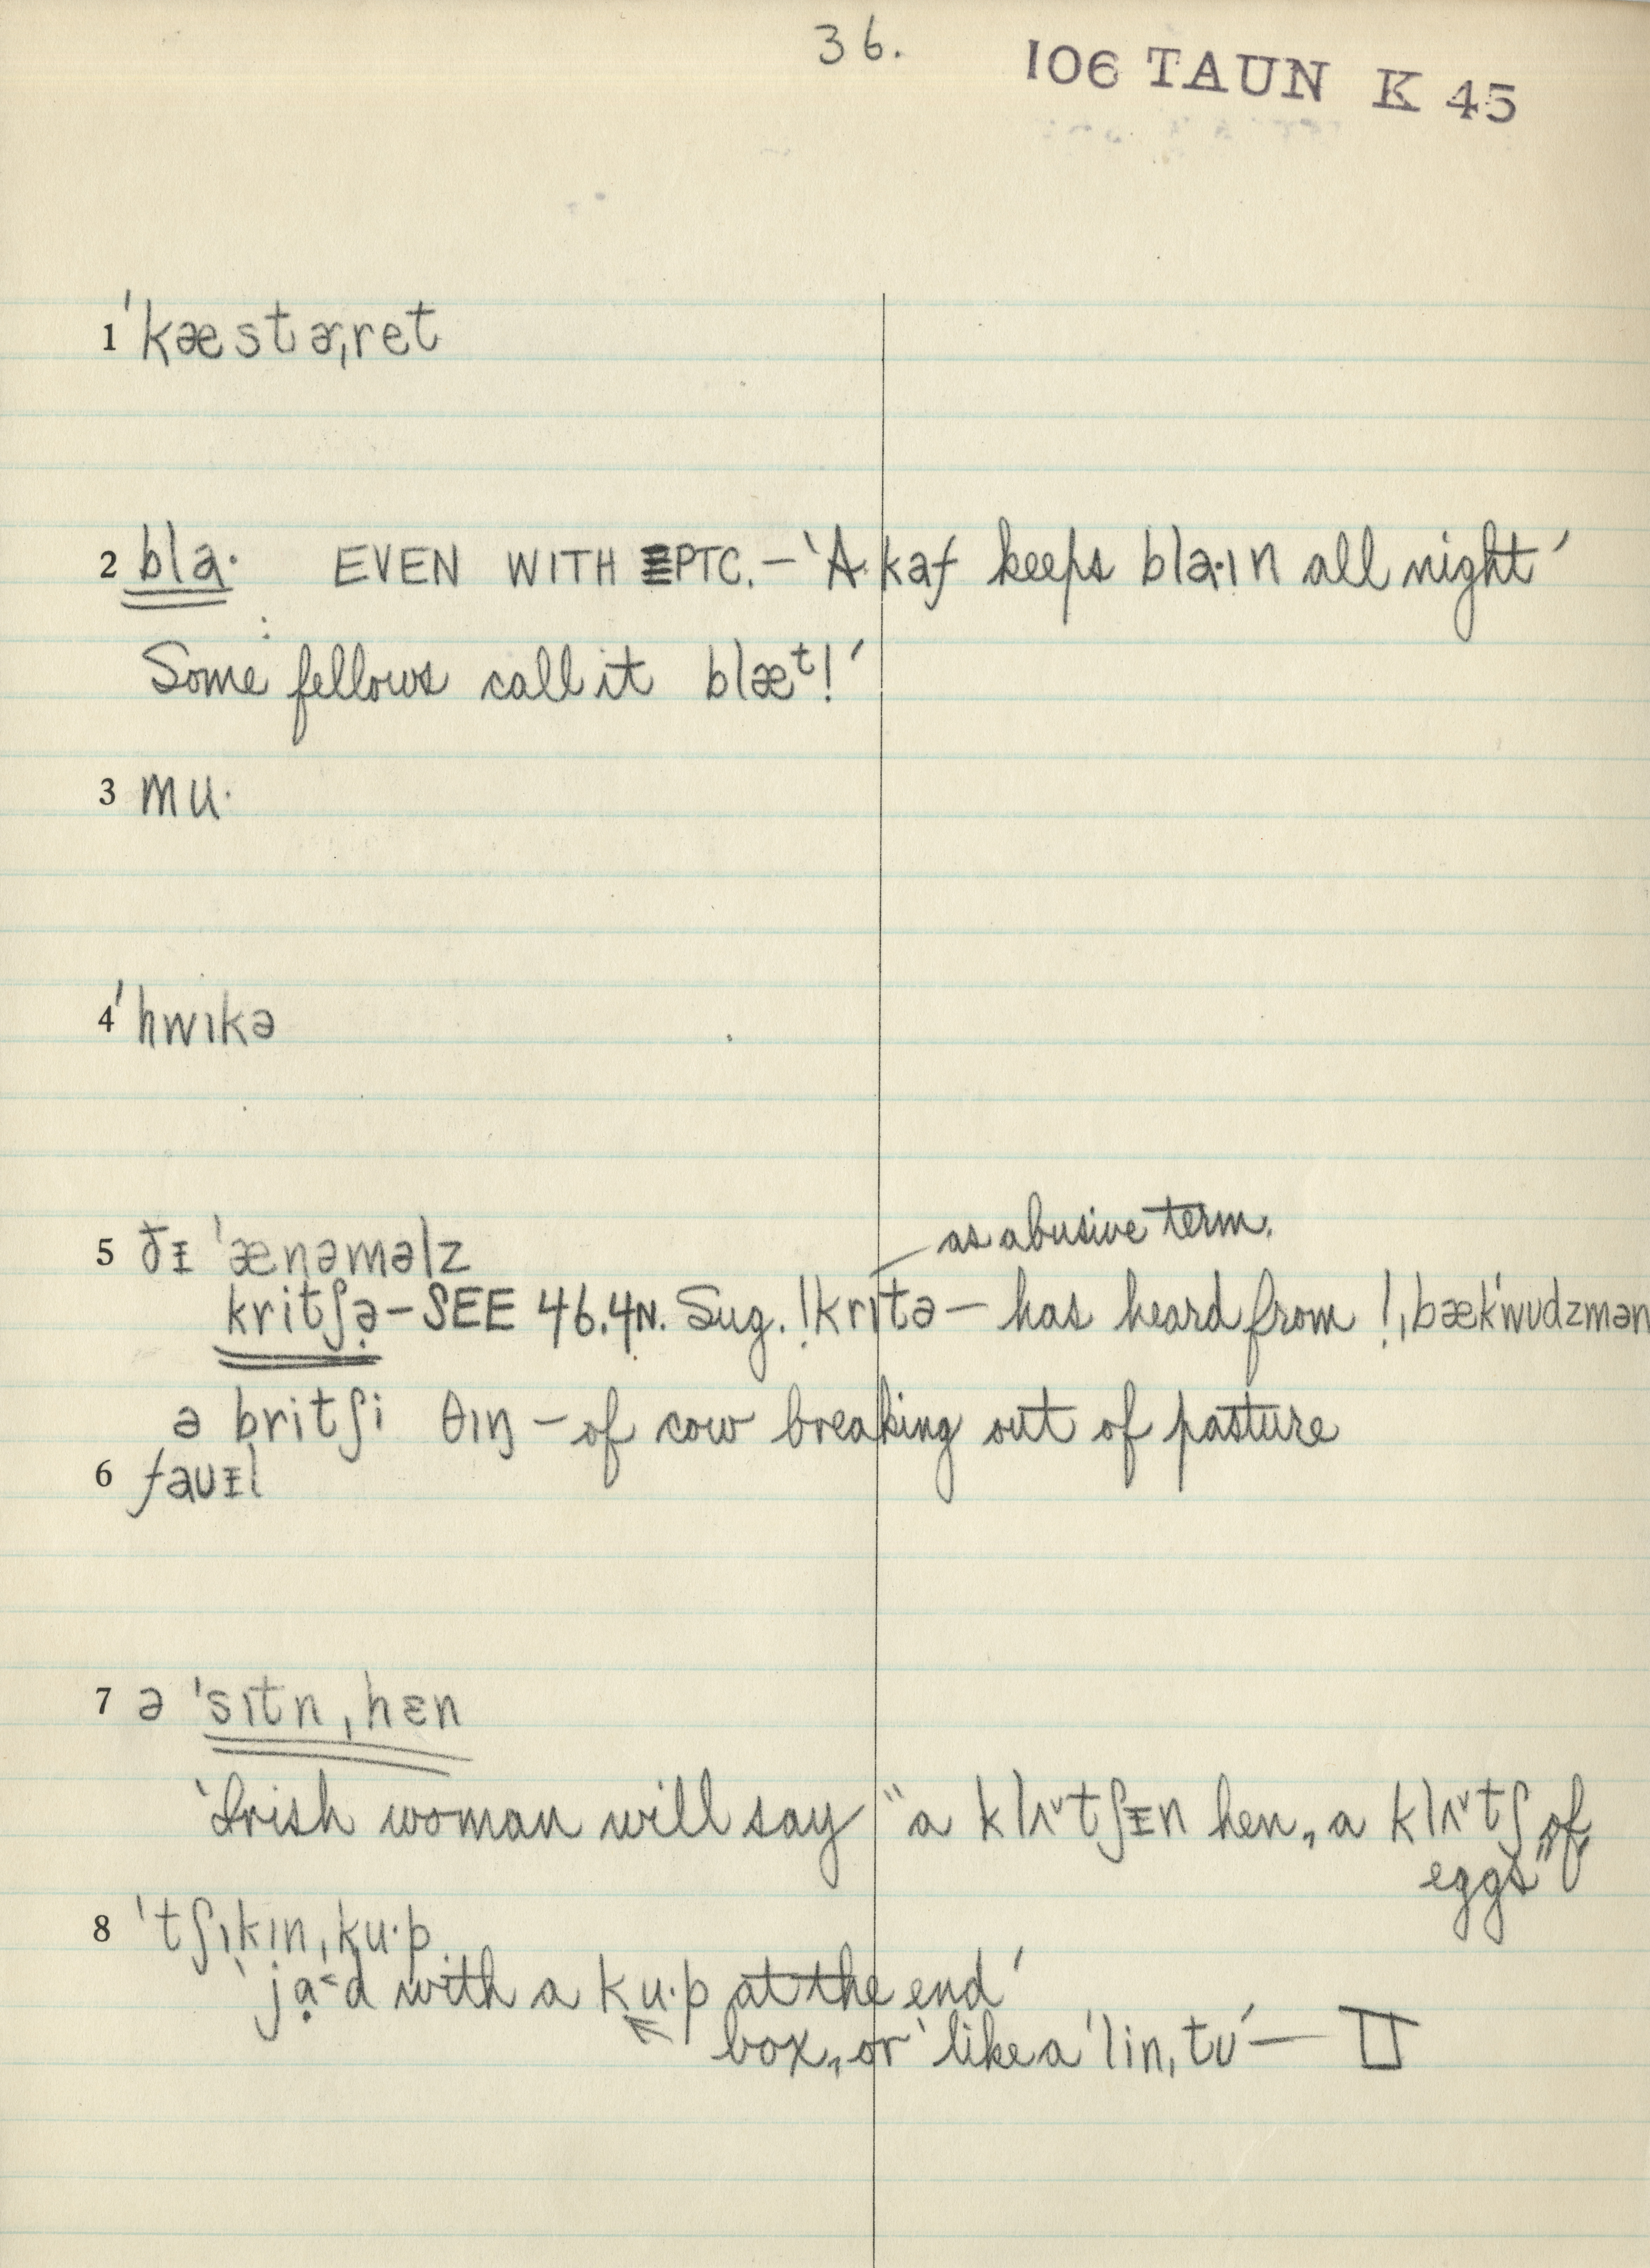 36.
106 TAUN K 45
1 ˈkæstɚˌret
2 bla· EVEN WITH PTC. – ‘A kaf keeps bla·ɪn all night’
Some fellows call it blæᵗ!’
3 mu·
4 ˈhwɪkə
as abusive term.
5 ðᵻ ˈænəməlz
kritʃə̣ – SEE 46.4N. Sug. !krɪtə – has heard from !ˌbækˈwudzmən
ə britʃi θɪŋ – of cow breaking out of pasture
6 fauᵻl
7 ə ˈsɪtn ˌhɛn
‘Irish woman will say “a klʌ˅tʃᵻn hen, a klʌ˅tʃ of
eggs”
8 ˈtʃɪkɪnˌku·p
‘jạ˂d with a ku·p at the end’
box, or ‘like a ˈlinˌtu’ –